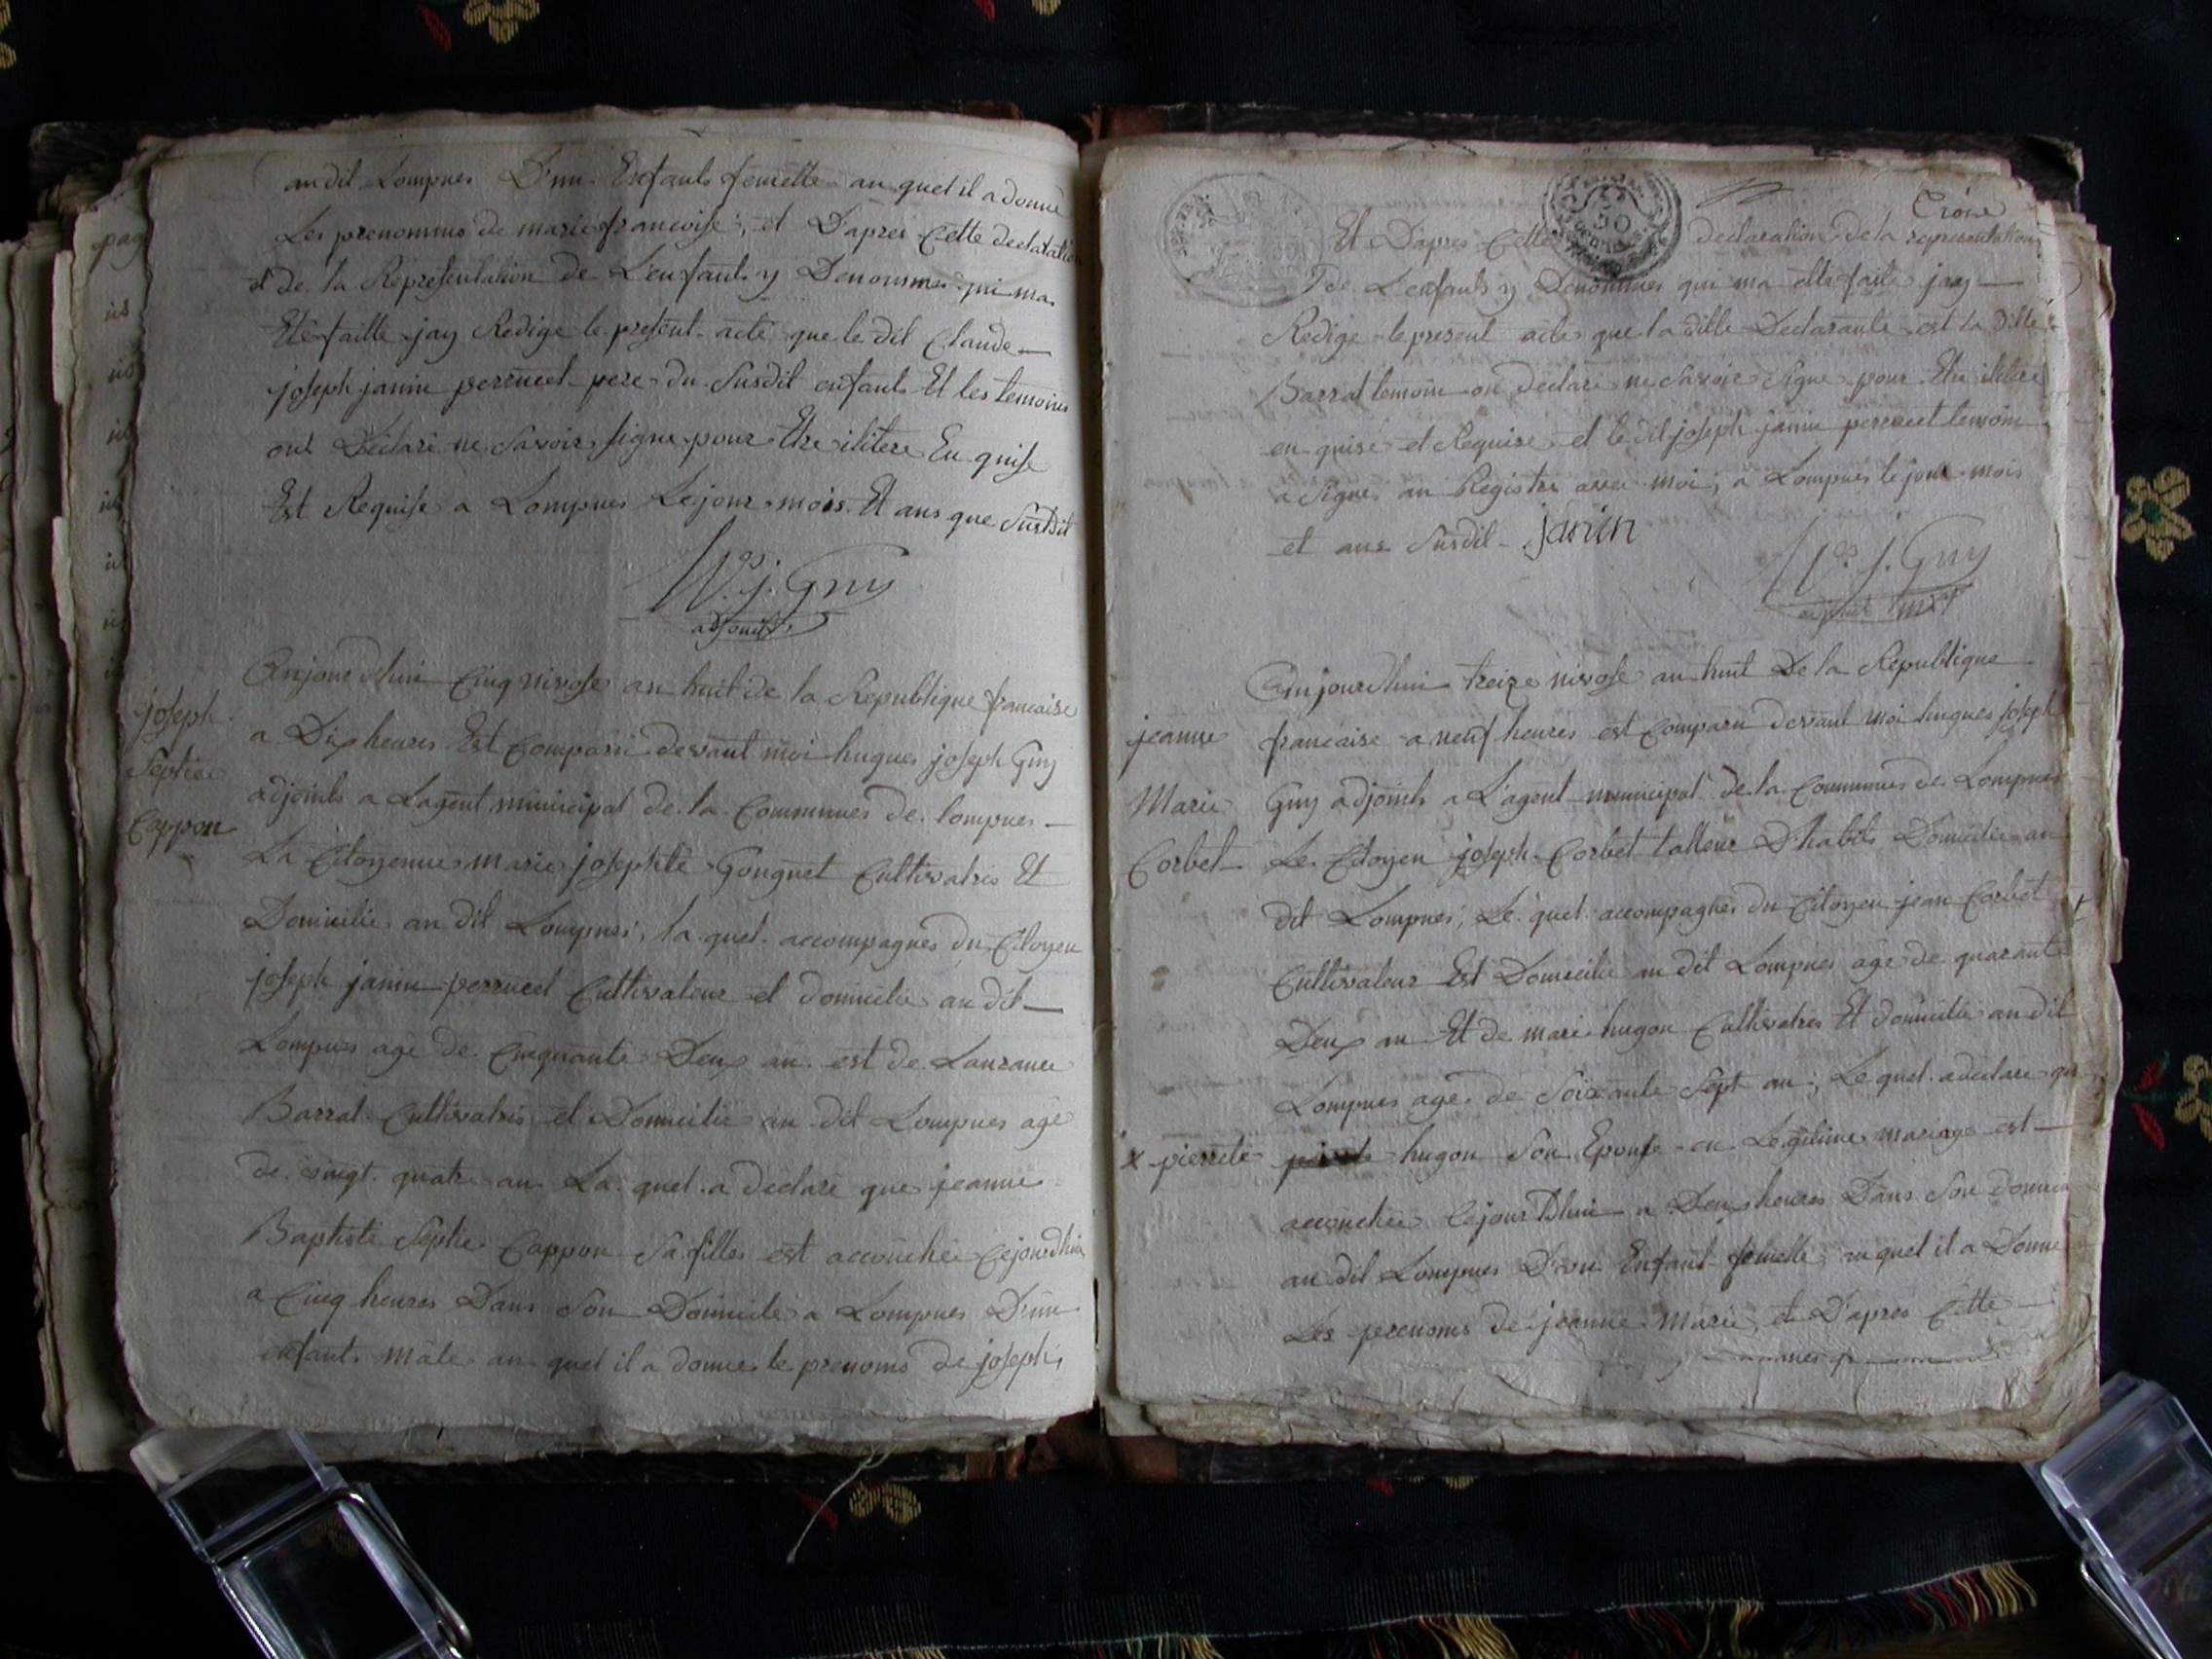 au dit Lompnes D'un Enfants femelle au quel il a donné
Les prenommo de marie francoise, et D'apres Cette declaration
et de la Représentation de L'enfants y Denommes qui ma
Eté faitte jay Redige le présent acte que le dit Claude
joseph janin perrucet pere du Susdit enfants Et les temoins
ont Déclaré ne Savoir signe pour Etre ilitere En quise
Est Requise a Lompnes Le jour mois Et ans que Susdit
h. j. Guy
adjoint
joseph
Septier
Cappon
Aujourdhui Cinq nivose an huit de la Republique francaise
a Dix heures Est Comparu devant moi hugues joseph Guy
adjoints a Lagent municipal de la Communes de lompnes
La Citoyenne marie josephte Gonguet Cultivatris Et
Domicilie au dit Lompnes, la quel accompagnes du Citoyen
joseph janin perrucet Cultivateur et domicilie au dit
Lompnes age de Cinquante Deux an est de Laurance
Barrat Cultivatris et Domicilie au dit Lompnes age
de vingt quatre an La quel a declare que jeanne
Baptiste Septier Cappon Sa filles est accouchée Cejourdhui
a Cinq heures Dans Son Domicile a Lompnes D'un
enfants mâle au quel il a donne le prenoms de joseph,
Croix
Et D'apres Cette declaration de la représentation
de L'enfants y Denommes qui ma etté faite jay
Redige le present acte que la ditte Declarante est la ditte
Barrat temoin on déclare ne Savoir Signe pour Etre ilitere
en quise et Requise et le dit joseph janin perrucet temoin
a Signe au Registre avec moi, a Lompnes le jour mois
et ans Susdit janin
h. j. Guy
adjoint
jeanne
Marie
Corbet
Aujourdhui treize nivose an huit De la Republique
francaise a neuf heures est Comparu devant moi hugues joseph
Guy adjoints a L'agent municipal de la Communes de Lompnes
Le Citoyen joseph Corbet talleur D'habits Domicilie au
dit Lompnes, Le quel accompagnes du Citoyen jean Corbet
Cultivateur Est Domicilie au dit Lompnes age de quarante
Deux an Et de marie hugon Cultivatres Et domicilie au dit
Lompnes age de Soixante Sept an, Le quel a declare que
x pierrete hugon Son Epouse en Legitime mariage est
accouchée Cejourdhui a Deux heures Dans Son domicile
au dit Lompnes D'un Enfant femelle au quel il a Donne
Les prenoms de jeanne Marie, et D'apres Cette